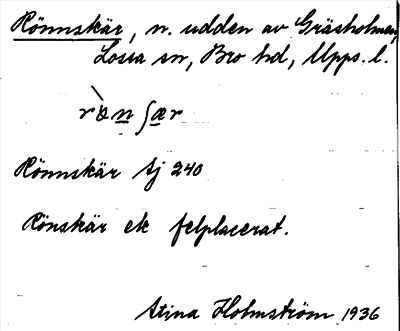 Rönnskär, n. udden av Gräsholmen,
Lossa sn, Bro hd, Upps. l.
Rönnskär Aj 240
Rönskär ek felplacerat.
Stina Holmström 1936